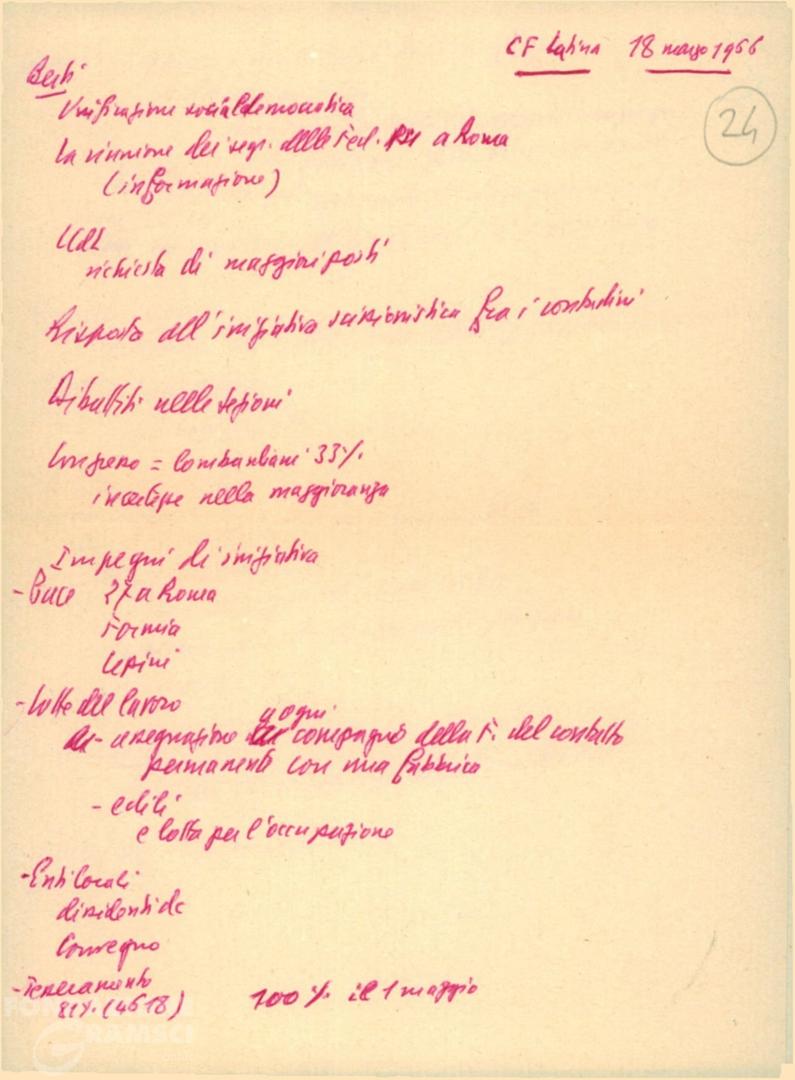 CF Latina 18 marzo 1966
24
Berti
Unificazione socialdemocratica
La riunione dei segr. delle Fed. PSI a Roma
(informazione)
richiesta di maggiori posti
Risposta all'iniziativa scissionistica fra i contadini
Dibattiti nelle sezioni
Congresso = Lombardiani 33%
incertezze nella maggioranza
Impegni di iniziativa
- Pace 27 a Roma
Formia
Lepini
- Lotte del lavoro
- assegnazione a ogni compagno della F. del contatto
permanente con una fabbrica
- edili
e lotta per l'occupazione
- Enti locali
dissidenti dc
Convegno
- Tesseramento
81% (4618) 100% il 1 maggio
FONDAZIONE
GRAMSCI